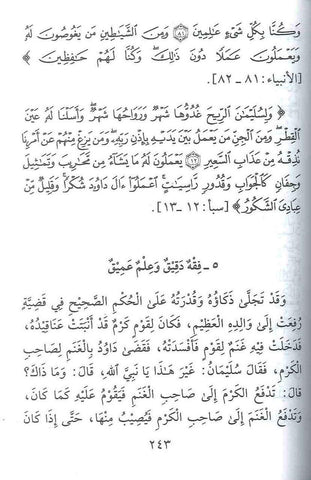 وَكُنَّا بِكُلِّ شَىْءٍ عَـٰلِمِينَ ﴿٨١﴾ وَمِنَ ٱلشَّيَـٰطِينِ مَن يَغُوصُونَ لَهُۥ
وَيَعْمَلُونَ عَمَلًا دُونَ ذَٰلِكَ ۖ وَكُنَّا لَهُمْ حَـٰفِظِينَ ﴾
[الأنبياء: ٨١ ـ ٨٢].
﴿ وَلِسُلَيْمَـٰنَ ٱلرِّيحَ غُدُوُّهَا شَهْرٌ وَرَوَاحُهَا شَهْرٌ ۖ وَأَسَلْنَا لَهُۥ عَيْنَ
ٱلْقِطْرِ ۖ وَمِنَ ٱلْجِنِّ مَن يَعْمَلُ بَيْنَ يَدَيْهِ بِإِذْنِ رَبِّهِۦ ۖ وَمَن يَزِغْ مِنْهُمْ عَنْ أَمْرِنَا
نُذِقْهُ مِنْ عَذَابِ ٱلسَّعِيرِ ﴿١٢﴾ يَعْمَلُونَ لَهُۥ مَا يَشَآءُ مِن مَّحَـٰرِيبَ وَتَمَـٰثِيلَ
وَجِفَانٍ كَٱلْجَوَابِ وَقُدُورٍ رَّاسِيَـٰتٍ ۚ ٱعْمَلُوٓا۟ ءَالَ دَاوُۥدَ شُكْرًا ۚ وَقَلِيلٌ مِّنْ
عِبَادِىَ ٱلشَّكُورُ ﴾ [سبأ: ١٢ ـ ١٣].
٥ ـ فِقْهٌ دَقِيقٌ وَعِلْمٌ عَمِيقٌ
وَقَدْ تَجَلَّى ذَكَاؤُهُ وَقُدْرَتُهُ عَلَىٰ الْحُكْمِ الصَّحِيحِ فِي قَضِيَّةٍ
رُفِعَتْ إِلَىٰ وَالِدِهِ الْعَظِيمِ، فَكَانَ لِقَوْمٍ كَرْمٌ قَدْ أَنْبَتَتْ عَنَاقِيدُهُ،
فَدَخَلَتْ فِيهِ غَنَمٌ لِقَوْمٍ فَأَفْسَدَتْهُ، فَقَضَىٰ دَاوُدُ بِالْغَنَمِ لِصَاحِبِ
الْكَرْمِ، فَقَالَ سُلَيْمَانُ: غَيْرَ هَذَا يَا نَبِيَّ اللهِ، قَالَ: وَمَا ذَاكَ؟
قَالَ: تَدْفَعُ الْكَرْمَ إِلَىٰ صَاحِبِ الْغَنَمِ فَيَقُومُ عَلَيْهِ كَمَا كَانَ،
وَتَدْفَعُ الْغَنَمَ إِلَىٰ صَاحِبِ الْكَرْمِ فَيُصِيبُ مِنْهَا، حَتَّىٰ إِذَا كَانَ
٢٤٣